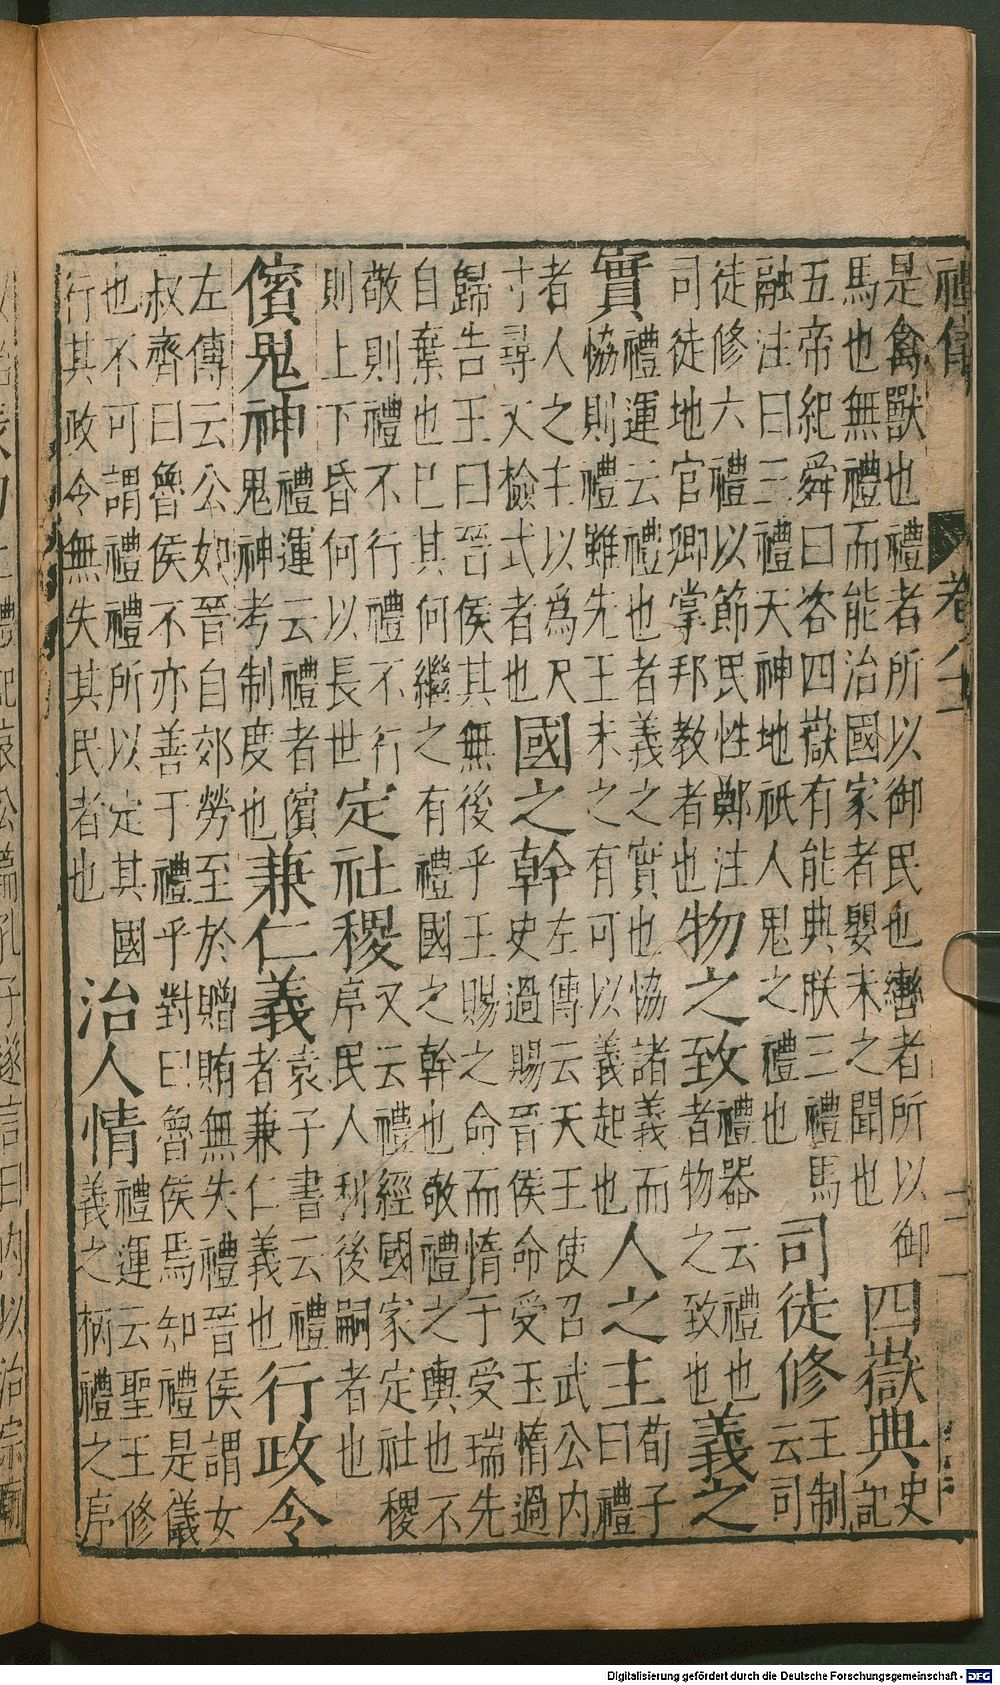 卷八十
是禽獸也禮者所以御民也轡者所以御
馬也無禮而能治國家者嬰未之聞也
四嶽典
史
記
五帝紀舜曰咨四嶽有能典朕三禮馬
融注曰三禮天神地祇人鬼之禮也
司徒修
王制
云司
徒修六禮以節民性鄭注
司徒地官卿掌邦教者也
物之致
禮器云禮也
者物之致也
義之
實
禮運云禮也者義之實也協諸義而
協則禮雖先王未之有可以義起也
人之主
荀子
曰禮
者人之主以爲尺
寸尋丈檢式者也
國之幹
左傳云天王使召武公内
史過賜晉侯命受玉惰過
歸告王曰晉侯其無後乎王賜之命而惰于受瑞先
自棄也巳其何繼之有禮國之幹也敬禮之輿也不
敬則禮不行禮不行
則上下昏何以長世
定社稷
又云禮經國家定社稷
序民人利後嗣者也
儐鬼神
禮運云禮者儐
鬼神考制度也
兼仁義
袁子書云禮
者兼仁義也
行政令
左傳云公如晉自郊勞至於贈賄無失禮晉侯謂女
叔齊曰魯侯不亦善于禮乎對曰魯侯焉知禮是儀
也不可謂禮禮所以定其國
行其政令無失其民者也
治人情
禮運云聖王修
義之柄禮之序
Digitalisierung gefördert durch die Deutsche Forschungsgemeinschaft - DFG